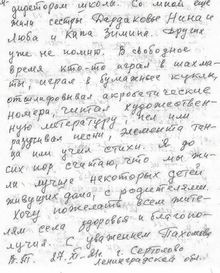 директором школы. Со мной ещё
жили сестры Фардаковы Нина и
Люба и Капа Зимина. Других
уже не помню. В свободное
время кто-то играл в шахма-
ты, играл в бумажные куклы,
отшлифовывал акробатические
номера, читал художествен-
ную литературу, пел или
разучивал песни, элементы тан-
ца или учил стихи. Я до
сих пор считаю, что мы жи-
ли лучше некоторых детей
живущих дома, с родителями.
Хочу пожелать всем жите-
лям села здоровья и благопо-
лучия. С уважением Пахомова
В.П. 27. г. Сертолово
Ленинградской обл.